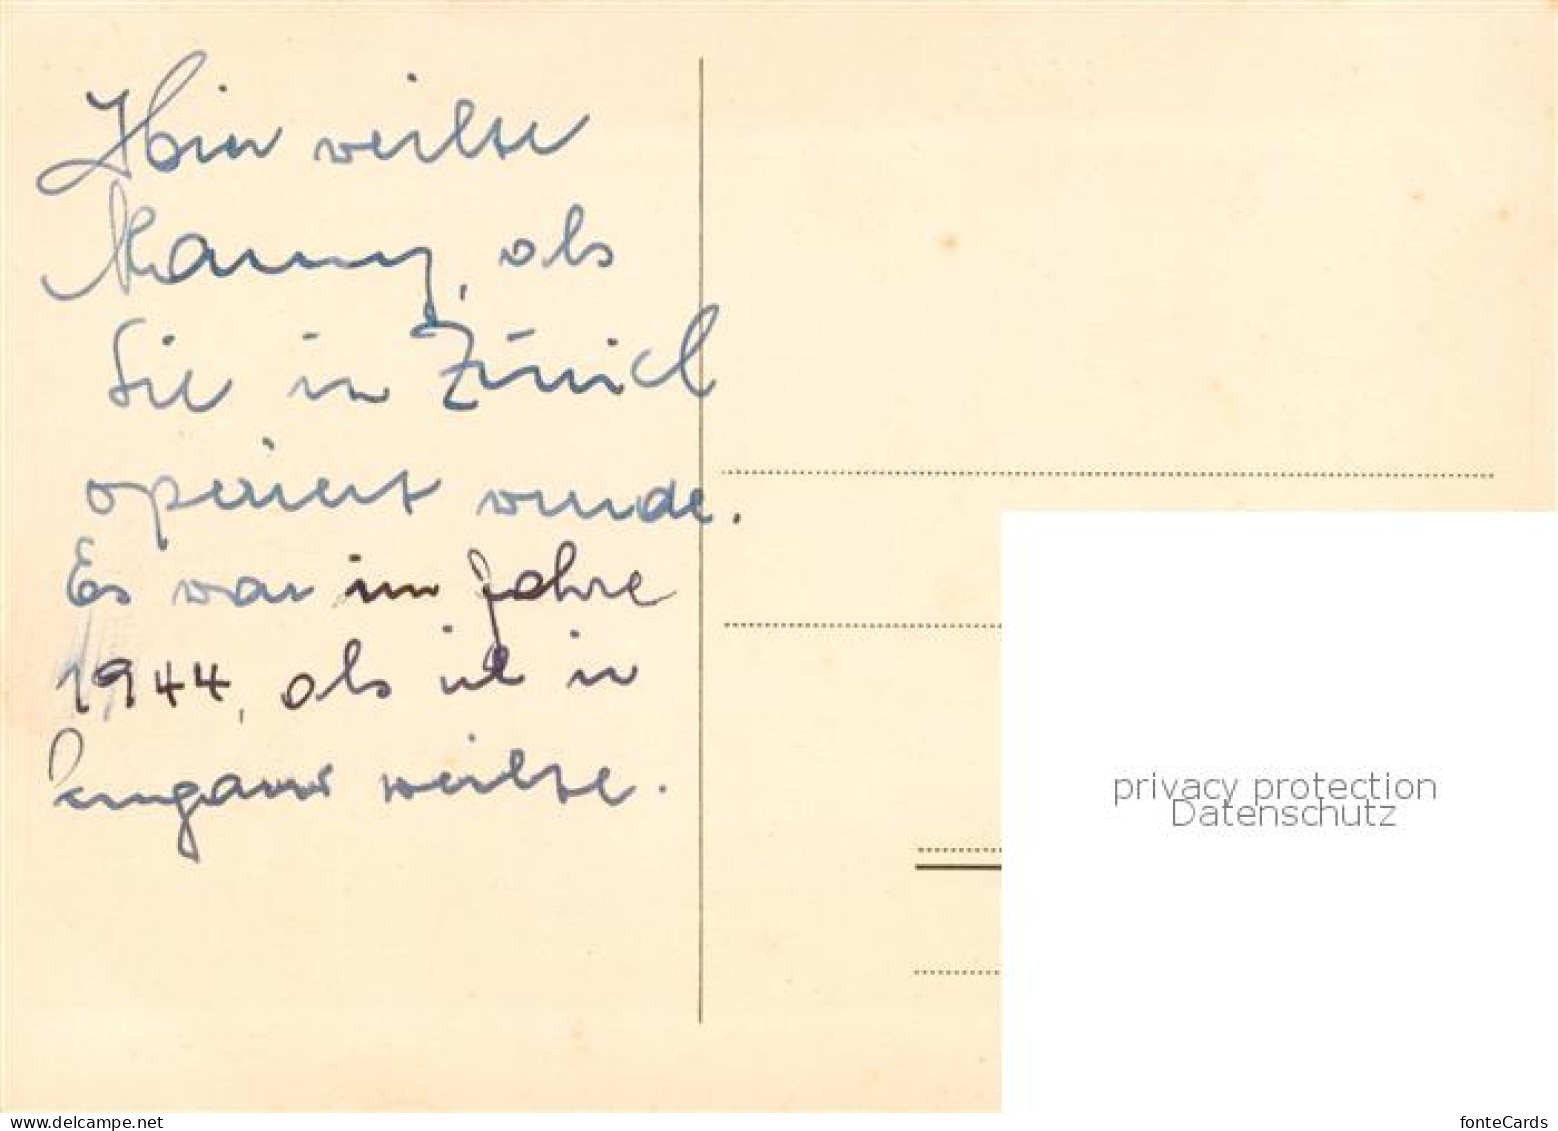 Hier weilte
als
Sie in Zürich
operiert wurde.
Es war im Jahre
1944, als ich in
weilte.
privacy protection
Datenschutz
www.delcampe.net
fonteCards